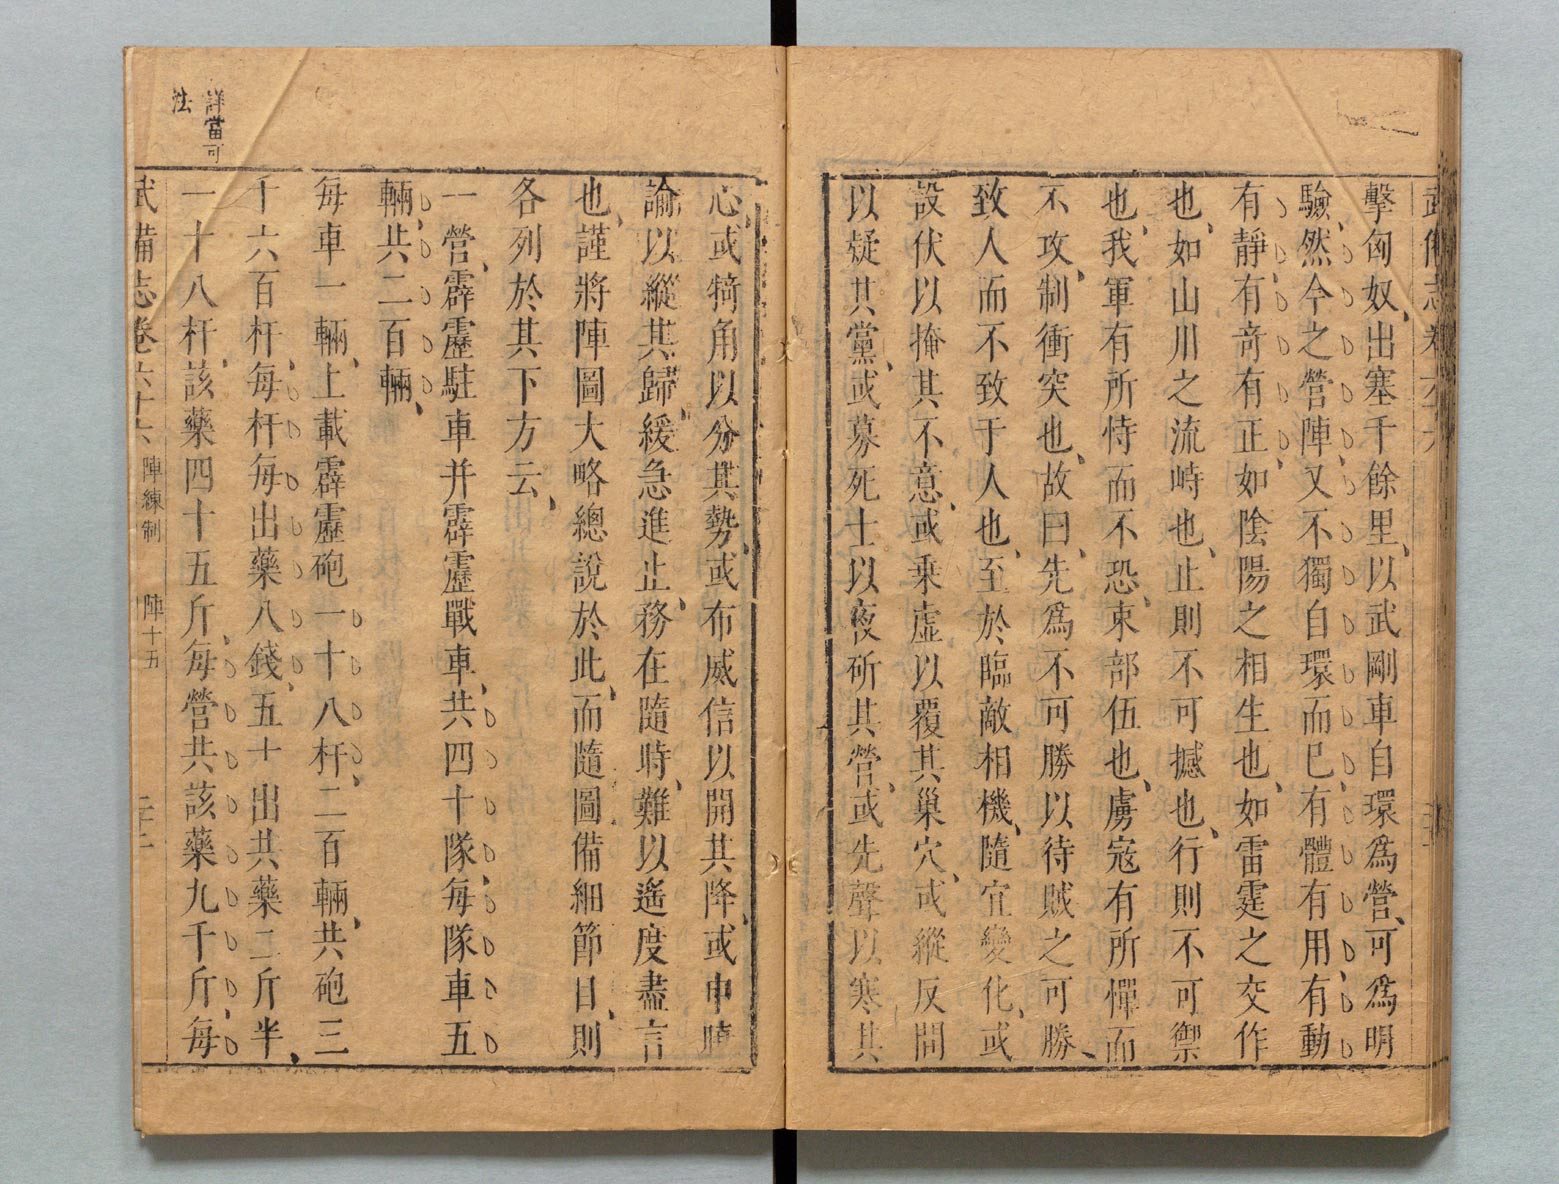 武備志卷六十六
擊匈奴、出塞千餘里、以武剛車自環爲營、可爲明
驗、然今之營陣、又不獨自環而已、有體有用、有動
有靜、有竒有正、如陰陽之相生也、如雷霆之交作
也、如山川之流峙也、止則不可撼也、行則不可禦
也、我軍有所恃而不恐、束部伍也、虜寇有所憚而
不攻、制衝突也、故曰、先爲不可勝以待賊之可勝、
致人而不致于人也、至於臨敵相機、隨宜變化、或
設伏以掩其不意、或乗虛以覆其巢穴、或縱反間
以疑其黨、或募死士以夜斫其營、或先聲以寒其
心、或犄角以分其勢、或布威信以開其降、或申曉
諭以縱其歸、緩急進止、務在隨時、難以遙度盡言
也、謹將陣圖大略總說於此、而隨圖備細節目、則
各列於其下方云、
一營、霹靂駐車并霹靂戰車、共四十隊、每隊車五
輛、共二百輛、
每車一輛、上載霹靂砲一十八杆、二百輛、共砲三
千六百杆、每杆每出藥八錢、五十出共藥二斤半、
一十八杆、該藥四十五斤、每營共該藥九千斤、每
詳當可
法
武備志卷六十六 陣練制 陣十五 二十二